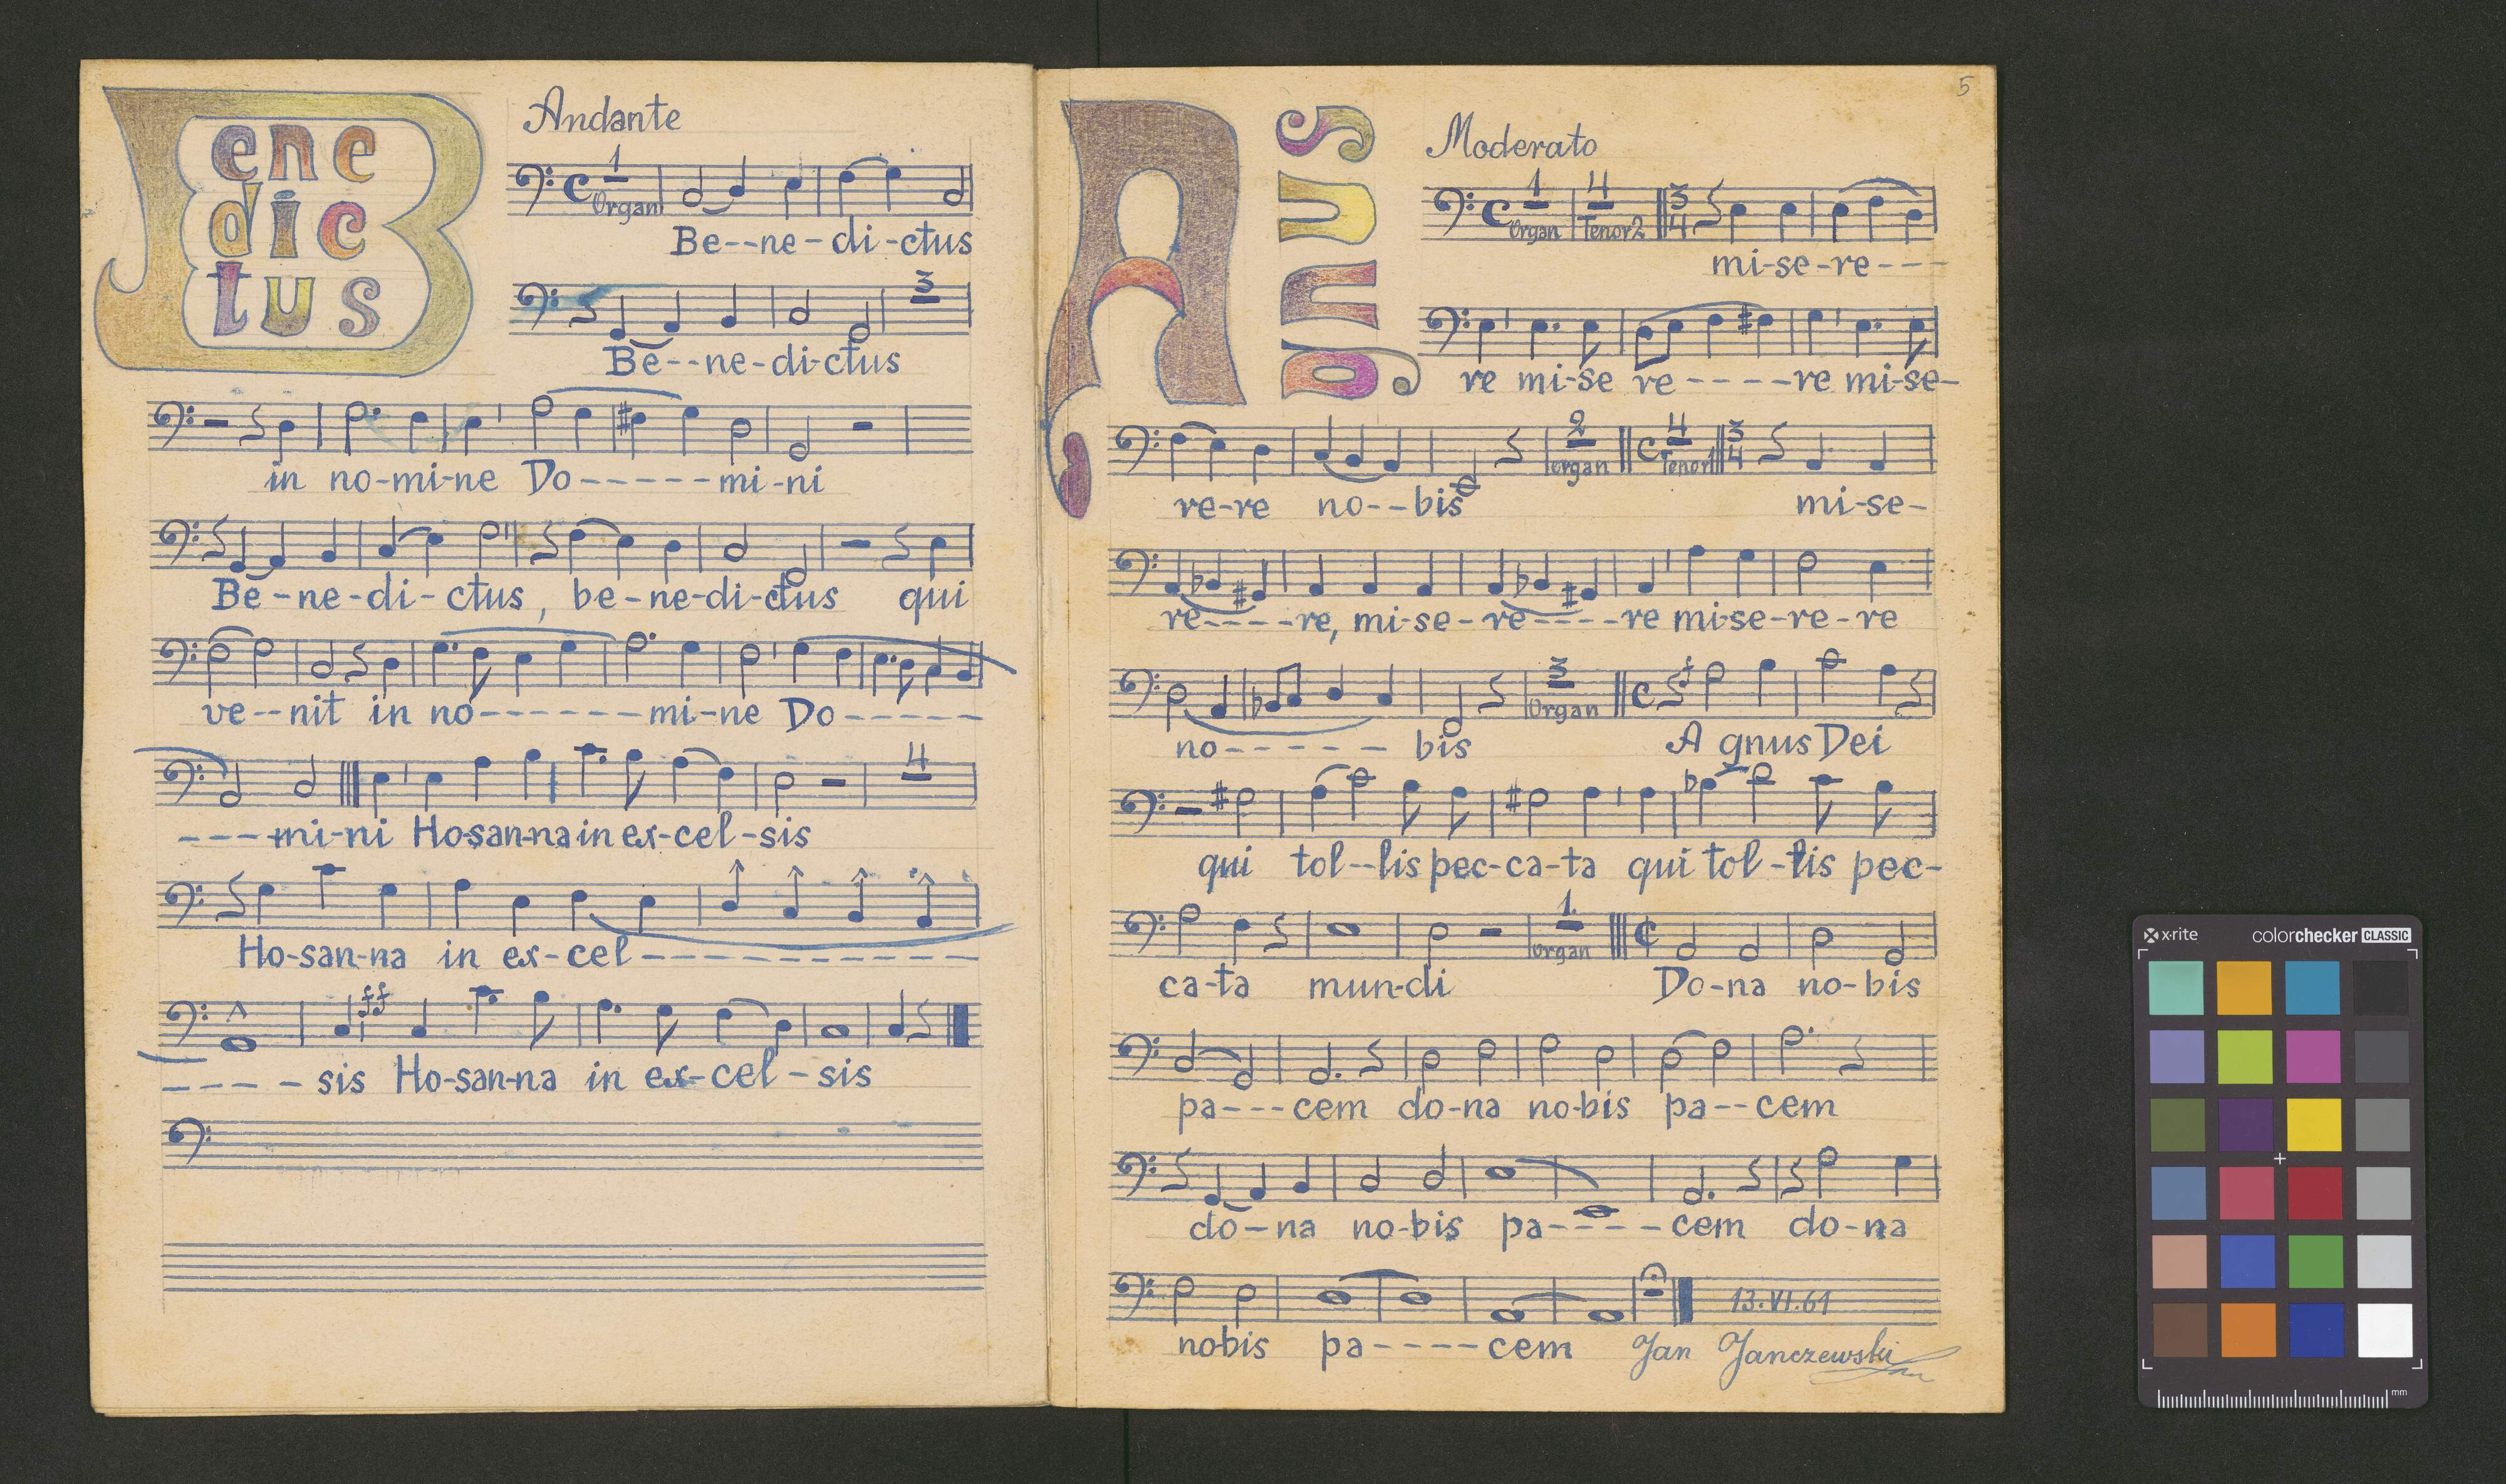 Benedictus
Andante
1
Organ
Be--ne-di-ctus
3
Be--ne-di-ctus
in no-mi-ne Do------mi-ni
Be-ne-di-ctus, be-ne-di-ctus qui
ve--nit in no-------mi-ne Do-----
4
---mi-ni Ho-san-na in ex-cel-sis
Ho-san-na in ex-cel----------
ff
----sis Ho-san-na in ex-cel-sis
5
Agnus
Moderato
1 4 3/4
Organ Tenor 2
mi-se-re---
re mi-se re-----re mi-se-
2 4 3/4
organ Tenor 1
re-re no--bis mi-se-
re----re, mi-se-re----re mi-se-re-re
3
Organ
no------ bis A gnus Dei
f
qui tol--lis pec-ca-ta qui tol-lis pec-
1.
organ
ca-ta mun-di Do-na no-bis
pa---cem do-na no-bis pa--cem
do-na no-bis pa----cem do-na
13.VI.61
nobis pa-----cem Jan Janczewski
x-rite colorchecker CLASSIC
mm